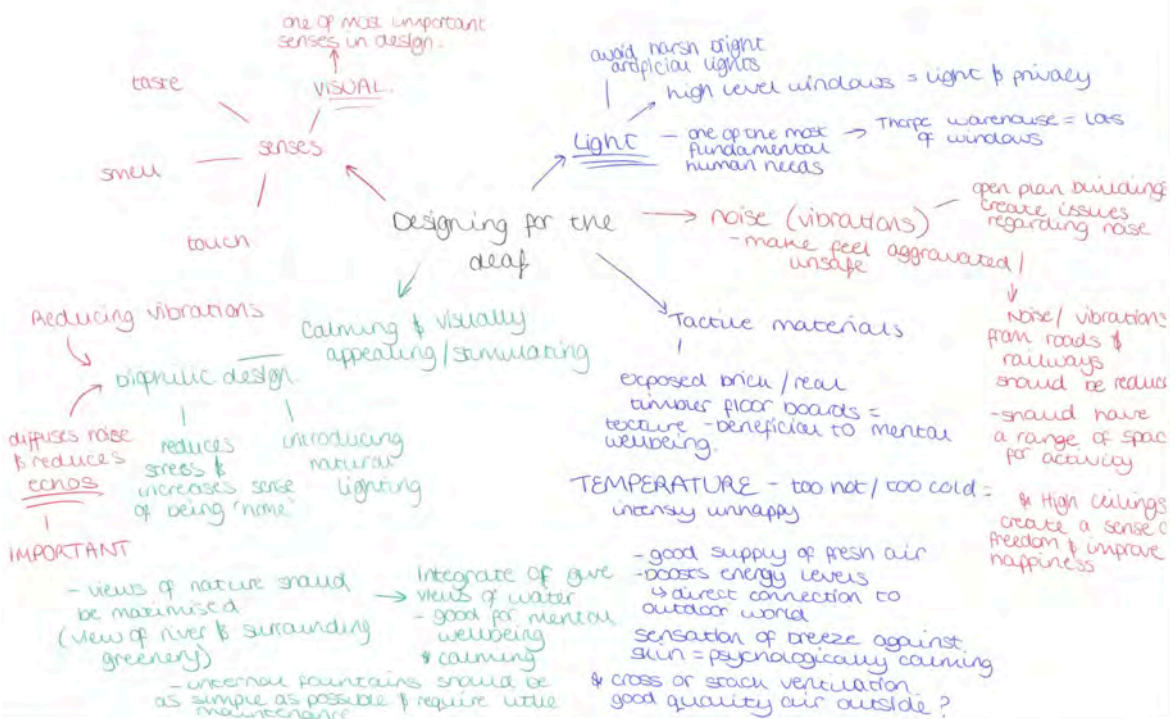 Designing for the
deaf
senses
VISUAL.
one of most important
senses in design.
taste
smell
touch
Light
avoid harsh bright
artificial lights
high level windows = light & privacy
- one of the most
fundamental
human needs
Thorpe warehouse = lots
of windows
noise (vibrations)
- make feel aggravated /
unsafe
open plan building
create issues
regarding noise
Noise / vibrations
from roads &
railways
should be reduc
- should have
a range of spac
for activity
& High ceilings
create a sense
freedom & improve
happiness
Tactile materials
exposed brick / real
timber floor boards =
texture - beneficial to mental
wellbeing.
TEMPERATURE - too hot / too cold =
intensly unhappy
- good supply of fresh air
- boosts energy levels
↳ direct connection to
outdoor world
sensation of breeze against
skin = psychologically calming
& cross or stack ventilation
good quality air outside ?
Calming & visually
appealing / stimulating
biophilic design
Reducing vibrations
diffuses noise
& reduces
echos
IMPORTANT
reduces
stress &
increases sense
of being 'home'
introducing
natural
lighting
- views of nature should
be maximised
(view of river & surrounding
greenery)
Integrate of give
views of water
- good for mental
wellbeing
& calming
- internal fountains should be
as simple as possible & require little
maintenance